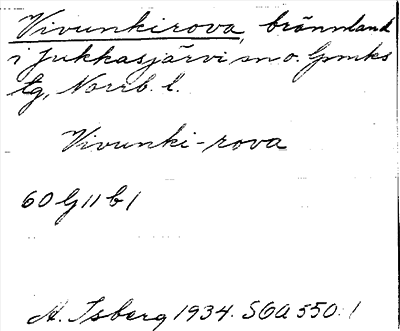 Vivunkirova, brännland
i Jukkasjärvi sn o. Gmks
tg, Norrb. l.
Vivunki-rova
60 G 11 b 1
H. Isberg 1934. SOA 550:1